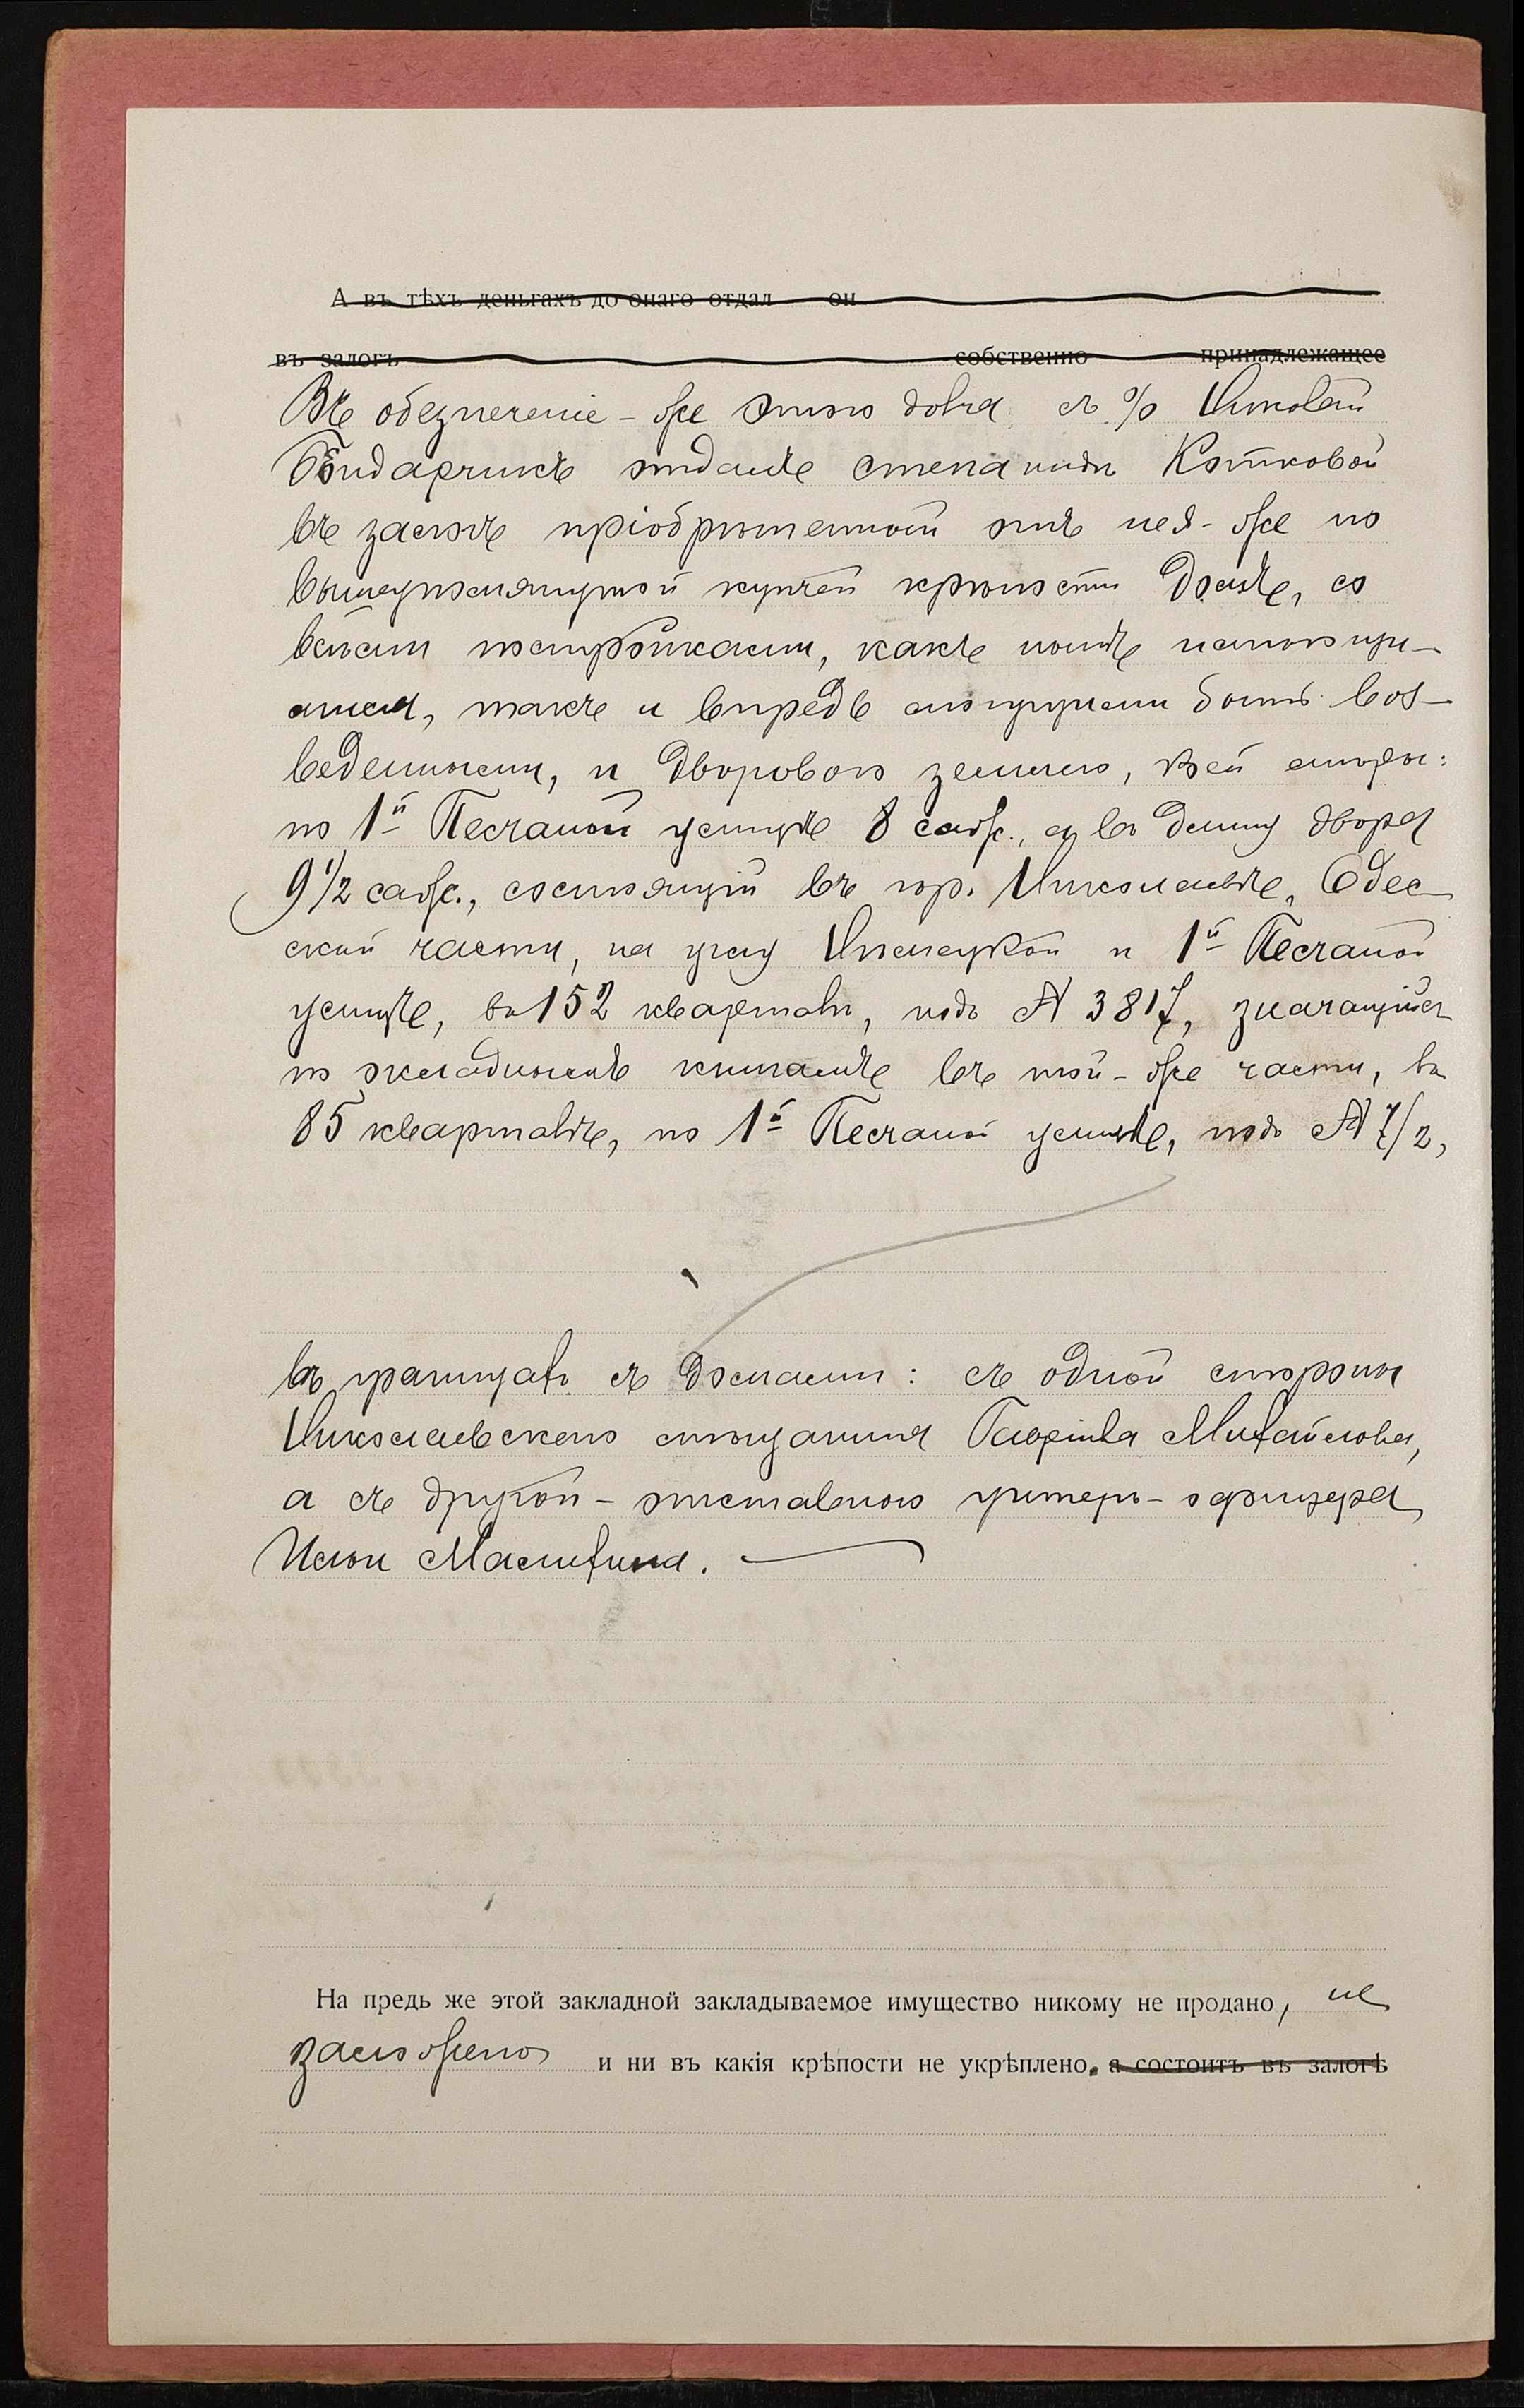 А въ тѣхъ деньгахъ до онаго отдал он
въ залогъ собственно принадлежащее
Въ обезпеченіе-же этого долга съ % Николай
Бондарчукъ отдалъ Степанидѣ Котковой
въ залогъ пріобрѣтенный отъ нея-же по
вышеупомянутой купчей крѣпости домъ, со
всѣми постройками, какъ нынѣ находящи-
мися, такъ и впредь могущими быть воз-
веденными, и дворовою землею, всей мѣры:
по 1й Песчаной улицѣ 8 саж., а въ длину двора
9 1/2 саж., состоящій въ гор. Николаевѣ, Одес-
ской части, на углу и 1й Песчаной
улицъ, въ 152 кварталѣ, подъ № 3817, значащійся
по окладнымъ книгамъ въ той-же части, въ
85 кварталѣ, по 1й Песчаной улицѣ, подъ № 7/2,
въ границахъ съ домами: съ одной стороны
Николаевскаго мѣщанина Гавріила Михайлова,
а съ другой - отставного унтеръ-офицера
На предь же этой закладной закладываемое имущество никому не продано, не
заложено и ни въ какія крѣпости не укрѣплено. а состоитъ въ залогѣ